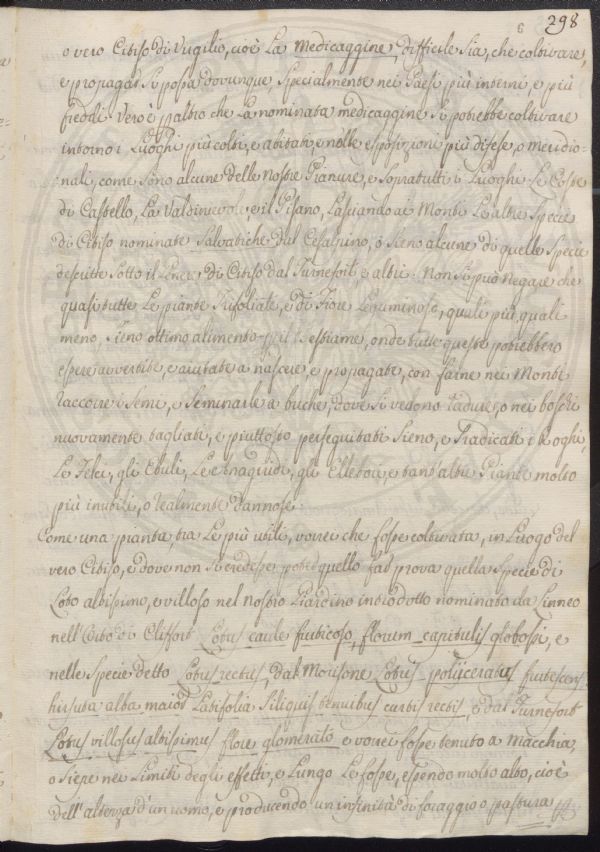 6 298
o vero Citiso di Virgilio, cioè La Medicaggine, difficile sia, che coltivare,
e propagar si possa dovunque, specialmente nei Paesi più interni, e più
freddi. Vero è peraltro che La nominata medicaggine si potrebbe coltivare
intorno i Luoghi più colti, e abitati, e nelle esposizioni più difese, o meridio=
nali, come sono alcune delle nostre Pianure, e sopratutti i Luoghi Le Coste
di Castello, La Valdinievole, e il Pisano, Lasciando ai Monti Le altre specie
di Citiso nominate Salvatiche dal Cesalpino, o sieno alcune di quelle specie
descritte sotto il genere di Citiso dal Turnefort e altri. Non si può negare che
quasi tutte Le piante Trifoliate, e di Fiore Leguminoso, quali più, quali
meno, sieno ottimo alimento pel bestiame, onde tutte queste potrebbero
essere avvertite, e aiutate a nascere, e propagate, con farne nei Monti
raccorre i semi, e seminarle a buche, dove si vedono radure, o nei boschi
nuovamente tagliati, e piuttosto perseguitati sieno, e sradicati i Roghi,
Le Felci, gli Ebuli, Le gli Ellebori, e tant'altre Piante molto
più inutili, o realmente dannose.
Come una pianta, tra Le più utili, vorrei che fosse coltivata, in Luogo del
vero Citiso, e dove non si credesse poter quello far prova quella specie di
Loto altissimo, e villoso nel nostro Giardino introdotto nominato da Linneo
nell'Orto di Cliffort Lotus caule fruticoso, florum capitulis globosis, e
nelle specie detto Lotus rectus, dal Morisone Lotus polyceratus frutescens
hirsuta alba major Latifolia siliquis tenuibus curtis rectis, e dal Turnefort
Lotus villosus altissimus flore glomerato e vorrei fosse tenuto a macchia,
o siepe nei Limiti degli effetti, e Lungo Le fosse, essendo molto alto, cioè
dell'altezza d'un uomo, e producendo un'infinità di foraggio o pastura